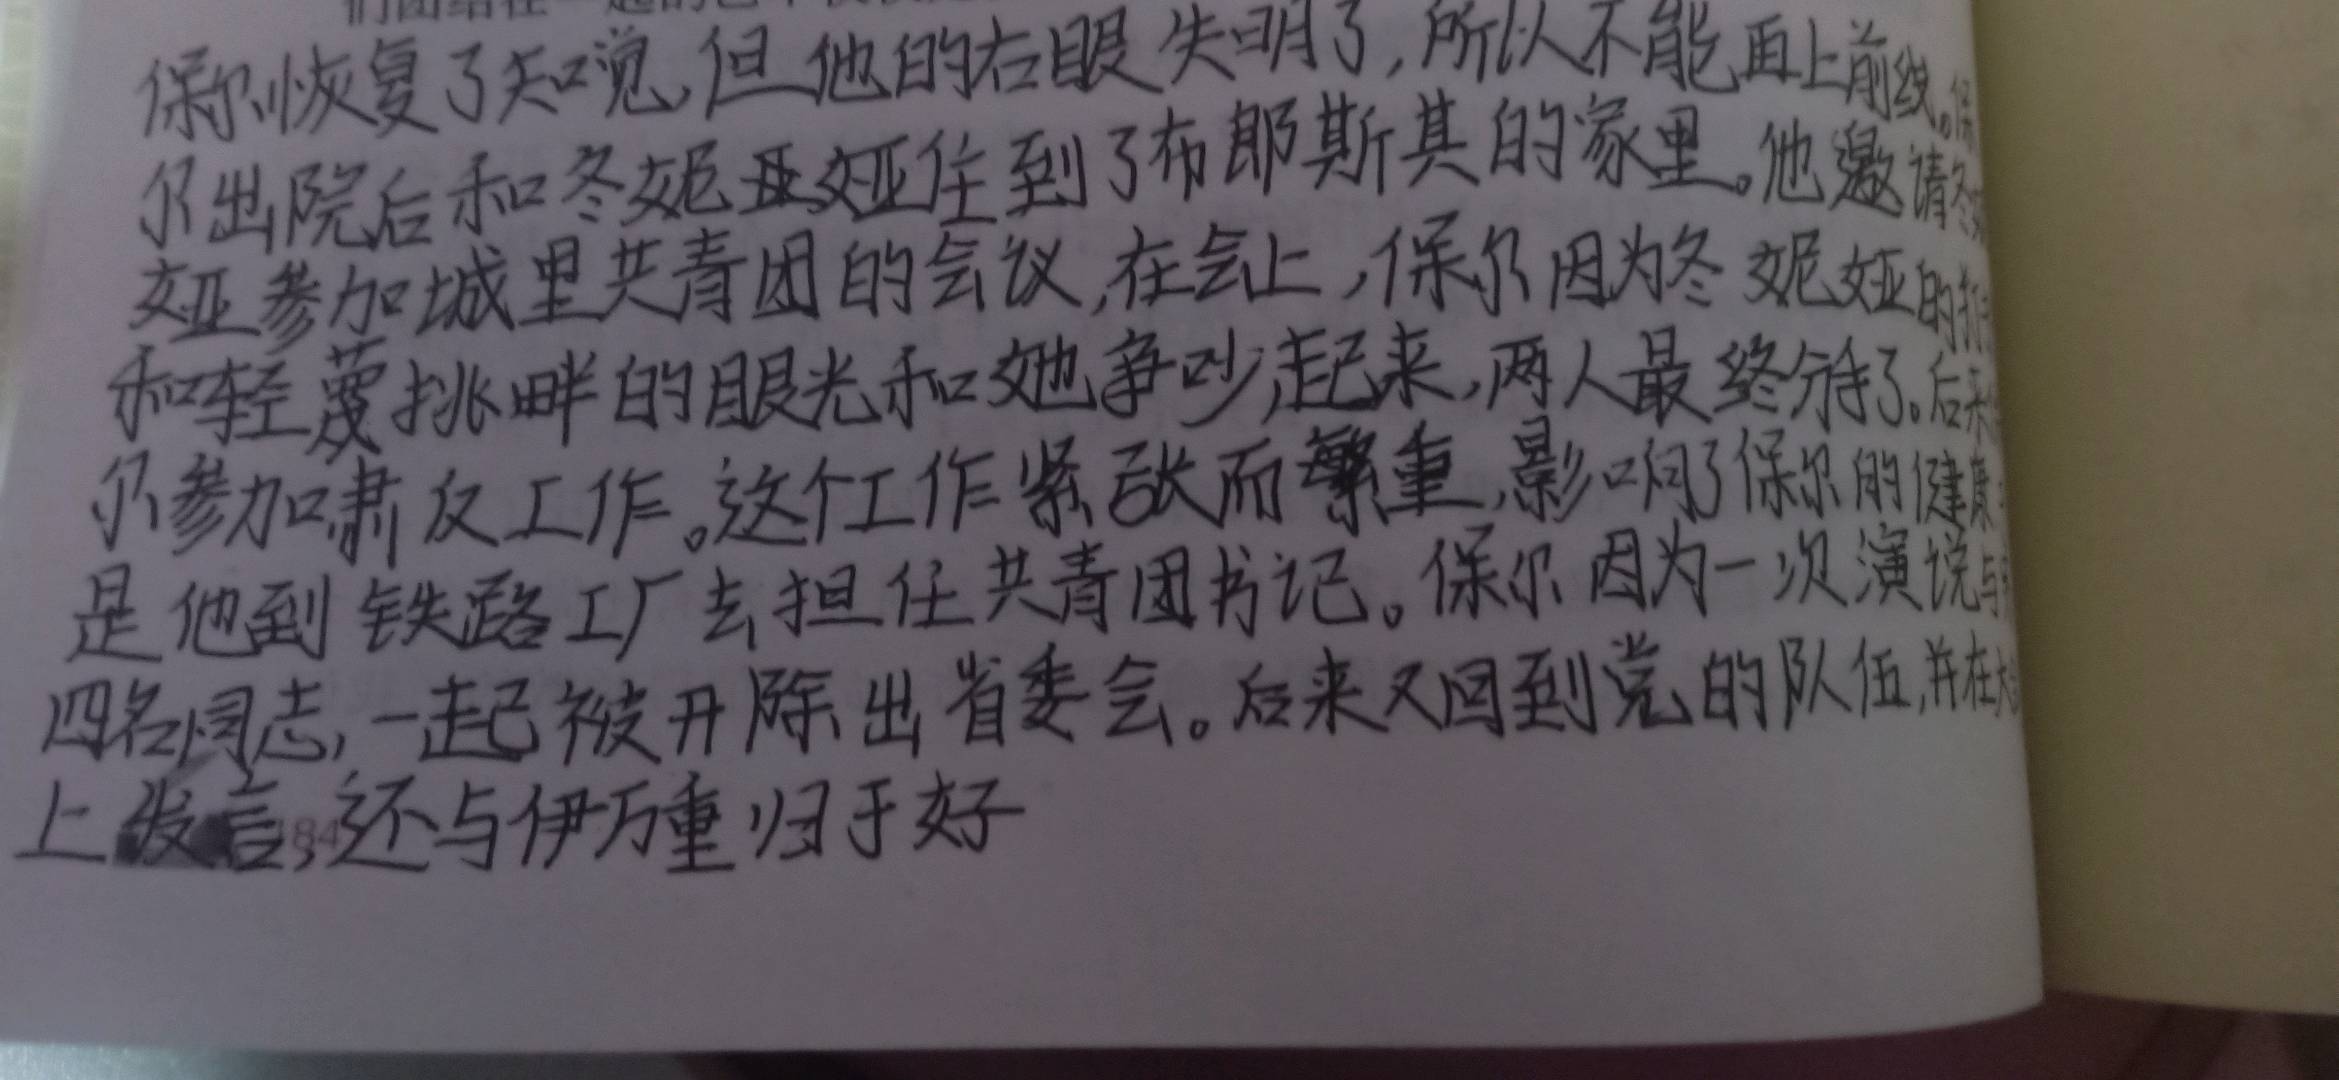 保尔恢复了知觉,但他的右眼失明了,所以不能再上前线。保
尔出院后和冬妮亚娅住到了布郎斯其的家里。他邀请冬
娅参加城里共青团的会议,在会上,保尔因为冬妮娅的打
和轻蔑挑畔的眼光和她争吵起来,两人最终分手了。后来
尔参加肃反工作。这个工作紧张而繁重,影响了保尔的健康
是他到铁路工厂去担任共青团书记。保尔因为一次演说与
四名同志,一起被开除出省委会。后来又回到党的队伍,并在大
上发言,还与伊万重归于好
84